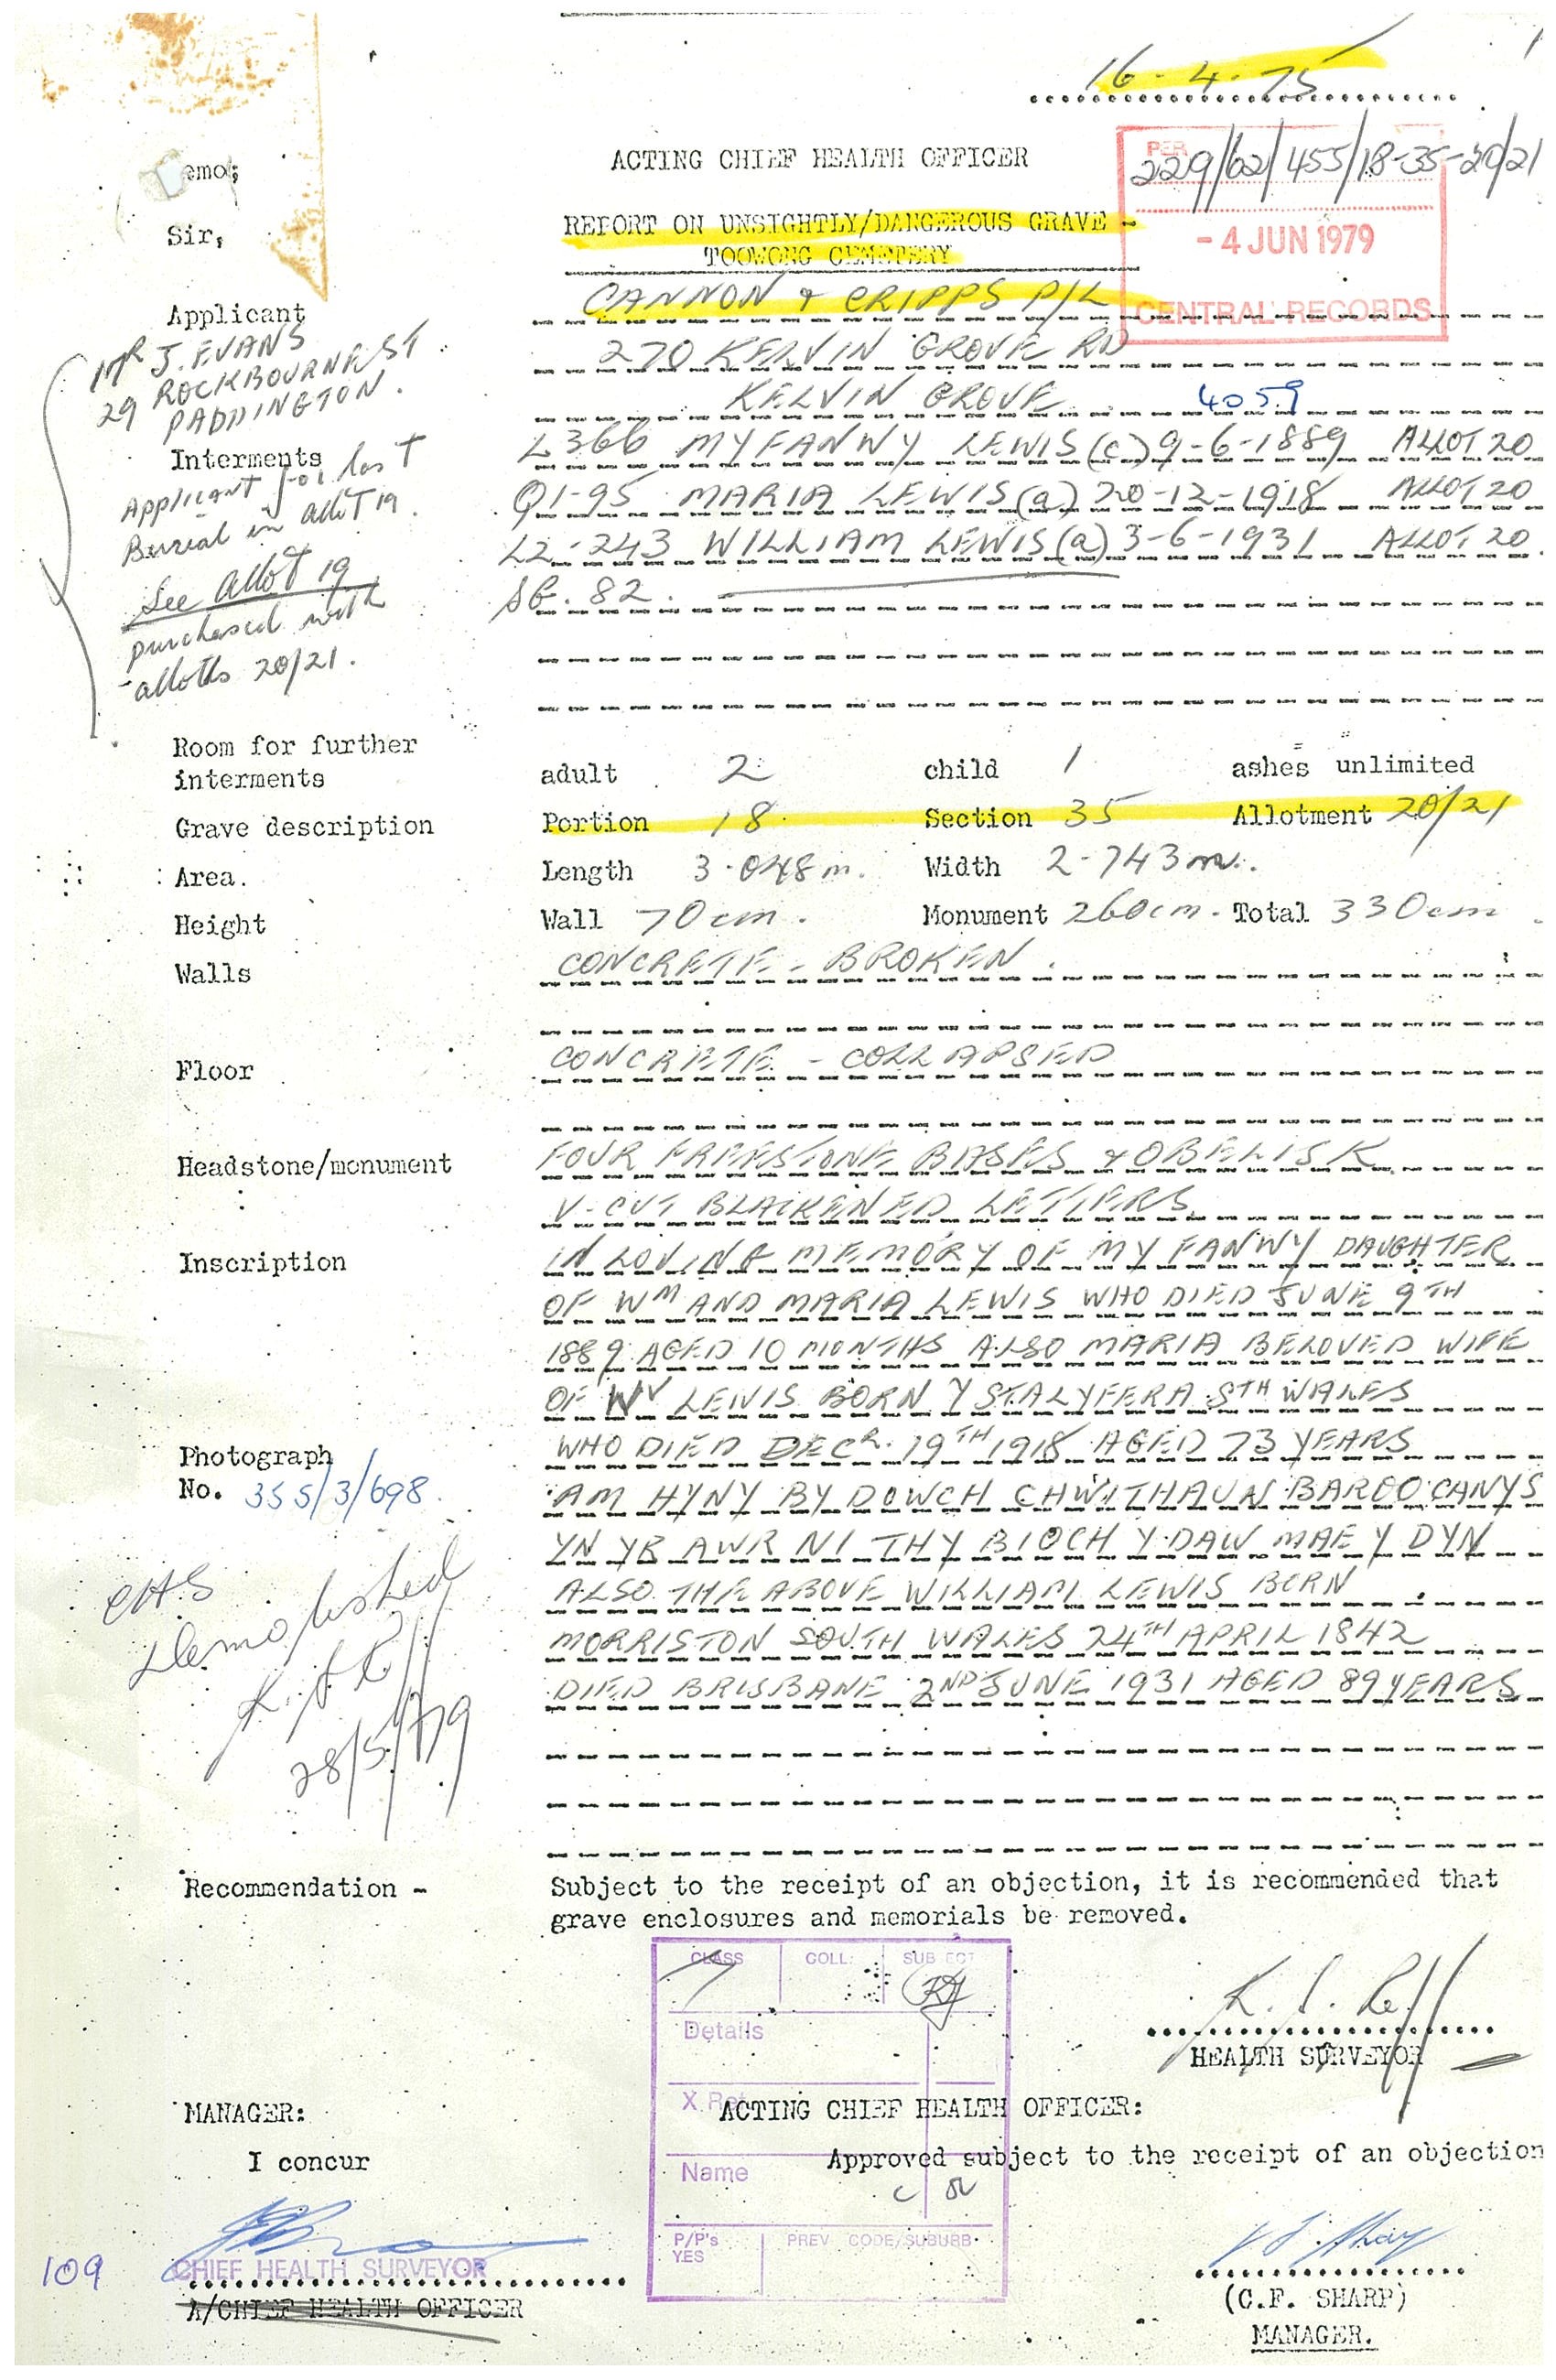 16-4-75
1
ACTING CHIEF HEALTH OFFICER
229/62/455/18-35-20/21
PER
emo;
Sir,
REPORT ON UNSIGHTLY/DANGEROUS GRAVE -
TOOWONG CEMETERY
- 4 JUN 1979
CENTRAL RECORDS
Applicant
CANNON & CRIPPS P/L
270 KELVIN GROVE RD
KELVIN GROVE 4059
MR J. EVANS
29 ROCKBOURNE ST
PADDINGTON.
Interments
L366 MYFANWY LEWIS (c) 9-6-1889 ALLOT 20
Q1-95 MARIA LEWIS (a) 20-12-1918 ALLOT 20
L2-243 WILLIAM LEWIS (a) 3-6-1931 ALLOT 20.
82.
Applicant for last
Burial in allot 19.
See allot 19
purchased with
allotts 20/21.
Room for further
interments
adult 2 child 1 ashes unlimited
Grave description Portion 18 Section 35 Allotment 20/21
Area. Length 3.048m. Width 2.743m.
Height Wall 70cm. Monument 260cm. Total 330cm
Walls CONCRETE - BROKEN.
Floor CONCRETE - COLLAPSED
Headstone/monument FOUR FREESTONE BASES & OBELISK
V-CUT BLACKENED LETTERS
Inscription IN LOVING MEMORY OF MYFANWY DAUGHTER
OF WM AND MARIA LEWIS WHO DIED JUNE 9TH
1889 AGED 10 MONTHS ALSO MARIA BELOVED WIFE
OF WV LEWIS BORN YSTALYFERA STH WALES
WHO DIED DECR. 19TH 1918 AGED 73 YEARS
AM HYNY BYDDWCH CHWITHAUN BAROD CANYS
YN YR AWR NI THYBIOCH Y DAW MAE Y DYN
ALSO THE ABOVE WILLIAM LEWIS BORN
MORRISTON SOUTH WALES 24TH APRIL 1842
DIED BRISBANE 2ND JUNE 1931 AGED 89 YEARS
Photograph
No. 355/3/698.
CHS
Demolished
28/5/79
Recommendation - Subject to the receipt of an objection, it is recommended that
grave enclosures and memorials be removed.
CLASS COLL: SUBJECT
7
Details
X Ref
Name
P/P's
YES
PREV CODE/SUBURB
HEALTH SURVEYOR
MANAGER:
ACTING CHIEF HEALTH OFFICER:
I concur
Approved subject to the receipt of an objection
109
CHIEF HEALTH SURVEYOR
A/CHIEF HEALTH OFFICER
(C.F. SHARP)
MANAGER.